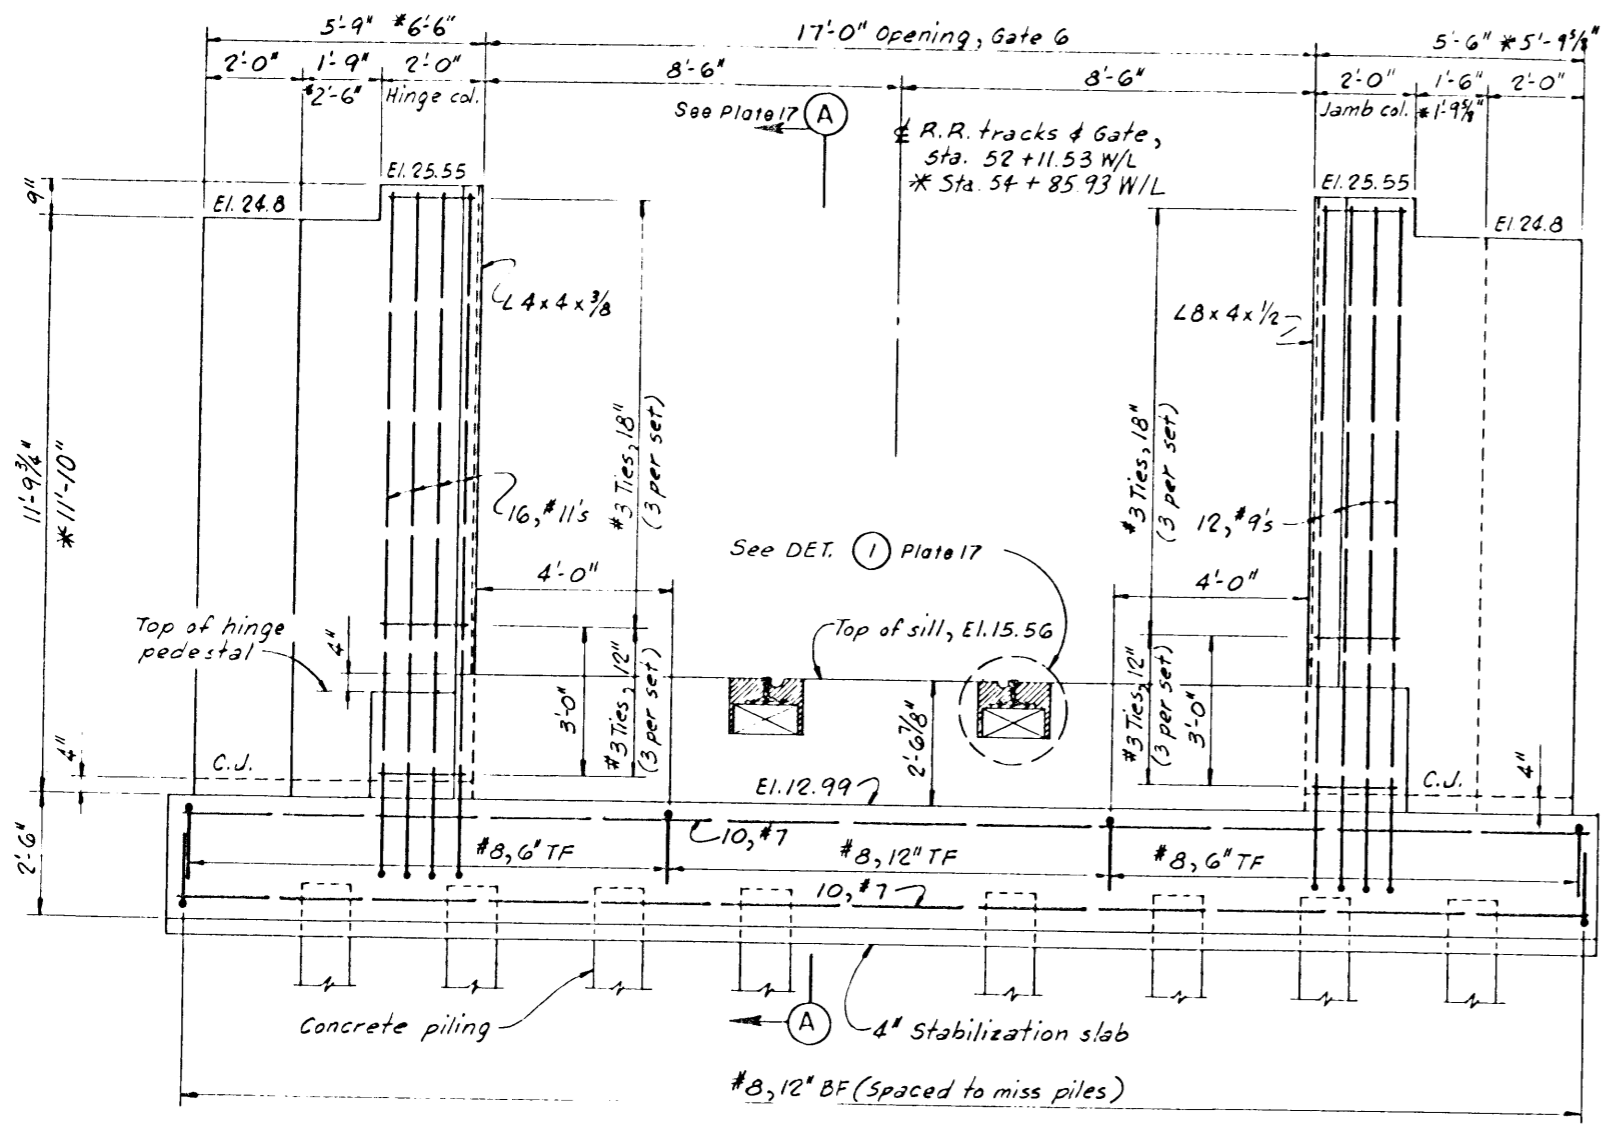 5'-9" *6'-6"
17'-0" Opening, Gate 6
5'-6" *5'-9⅝"
2'-0"
1'-9"
2'-0"
8'-6"
8'-6"
2'-0"
1'-6"
2'-0"
*2'-6"
Hinge col.
Jamb col.
*1'-9⅝"
See Plate 17
A
℄ R.R. tracks & Gate,
Sta. 52 + 11.53 W/L
* Sta. 54 + 85.93 W/L
9"
El. 25.55
El. 24.8
El. 25.55
El. 24.8
L 4 x 4 x 3/8
L 8 x 4 x 1/2
#3 Ties, 18"
(3 per set)
#3 Ties, 18"
(3 per set)
11'-9¾"
*11'-10"
16, #11's
12, #9's
See DET. 1 Plate 17
4'-0"
4'-0"
Top of hinge
pedestal
4"
Top of sill, El. 15.56
3'-0"
#3 Ties, 12"
(3 per set)
2'-6⅞"
#3 Ties, 12"
(3 per set)
3'-0"
4"
C.J.
El. 12.99
C.J.
4"
2'-6"
10, #7
#8, 6" TF
#8, 12" TF
#8, 6" TF
10, #7
Concrete piling
A
4" Stabilization slab
#8, 12" BF (Spaced to miss piles)